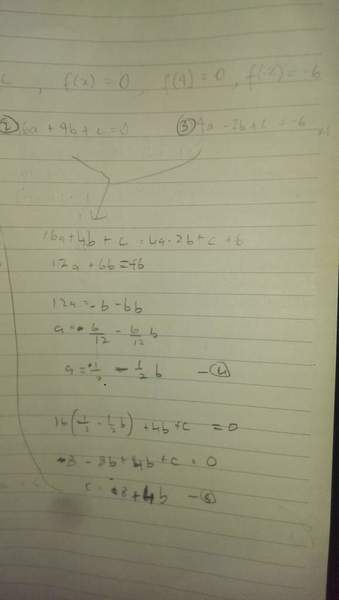 c , f(x) = 0 , f(4) = 0 , f(-2) = -6
② 16a + 4b + c = 0 ③ 4a - 2b + c = -6
16a + 4b + c = 4a - 2b + c + 6
12a + 6b =
12a = - 6 - 6b
a = - 6/12 - 6/12 b
a = - 1/2 - 1/2 b - ④
16(1/2 - 1/2 b) + 4b + c = 0
- 8b + 4b + c = 0
c = 8 + 4b - ⑤